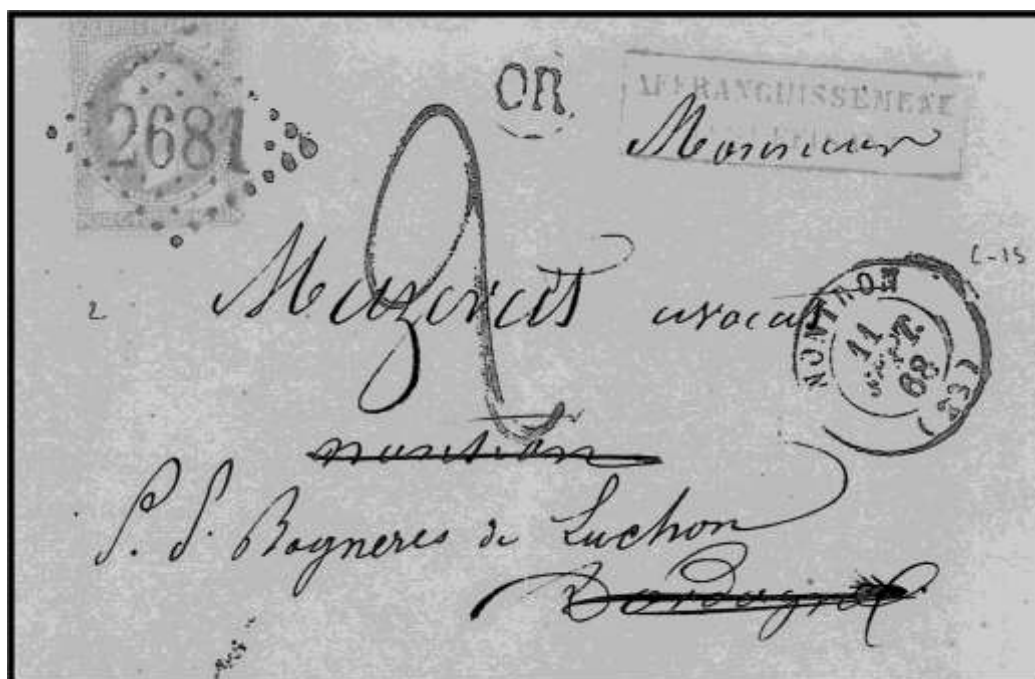 2681
OR
AFFRANCHISSEMENT
Monsieur
2
L-15
2
Mazerat avocat
NONTRON
11
SEPT.
68
(23)
nontron
P. P. Bagneres de Luchon
Dordogne